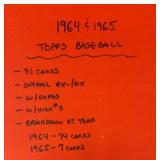 1964 & 1965
TOPPS BASEBALL
- 81 CARDS
- OVERALL EX-/EX
- W/DUPES
- W/HIGH #'S
- BREAKDOWN BY YEAR
1964 - 74 CARDS
1965 - 7 CARDS